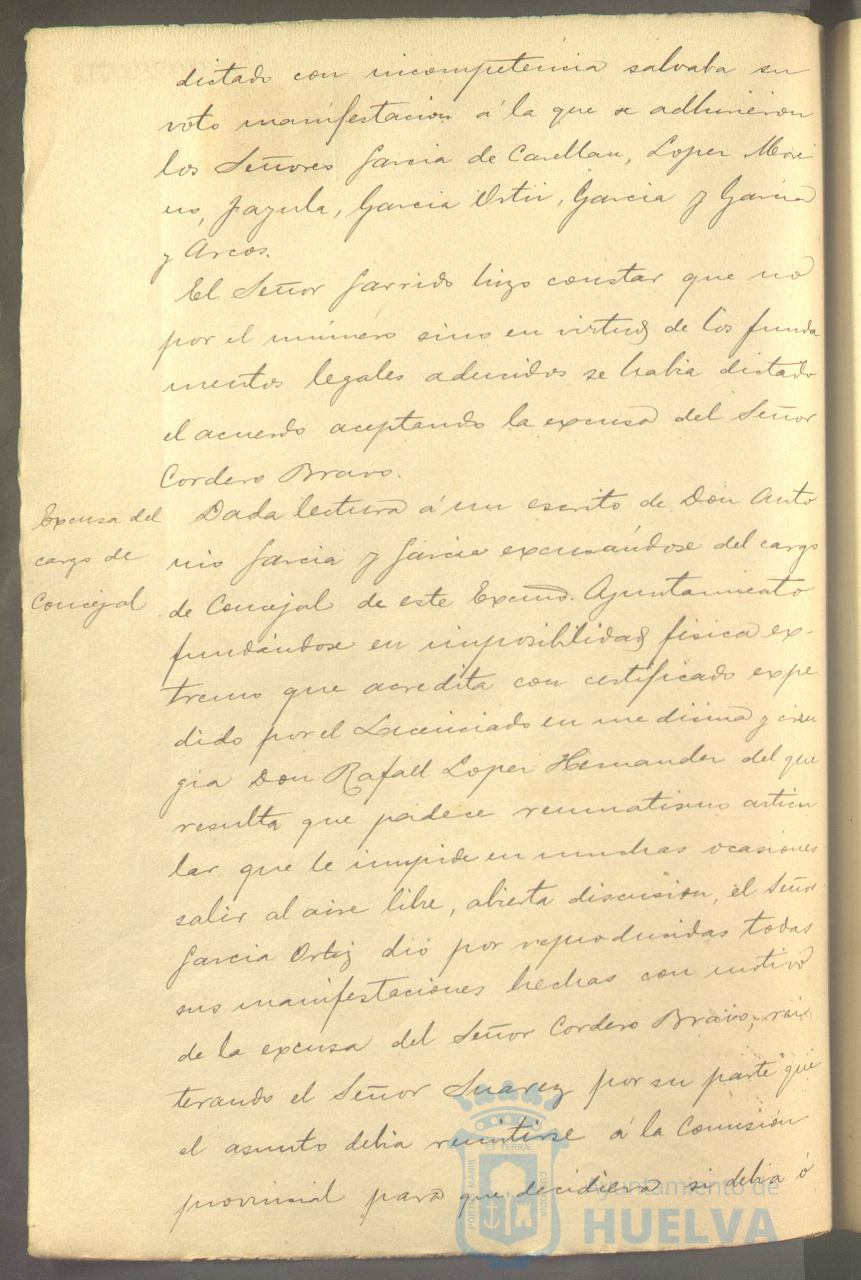 dictado con incompetencia salvaba su
voto manifestacion á la que se adhirieron
los Señores Garcia de Casellau, Lopez More
no, Jazula, Garcia Ortiz, Garcia y Garcia
y Arcos.
El Señor Garrido hizo constar que no
por el número sino en virtud de los funda
mentos legales aducidos se habia dictado
el acuerdo aceptando la excusa del Señor
Cordero Bravo.
Excusa del
cargo de
Concejal
Dada lectura á un escrito de Don Anto
nio Garcia y Garcia excusándose del cargo
de Concejal de este Excmo. Ayuntamiento
fundándose en imposibilidad fisica ex-
tremo que acredita con certificado expe
dido por el Licenciado en medicina y ciru
gia Don Rafael Lopez Hernandez del que
resulta que padece reumatismo articu
lar que le impide en muchas ocasiones
salir al aire libre, abierta discusion, el Señor
Garcia Ortiz dió por reproducidas todas
sus manifestaciones hechas con motivo
de la excusa del Señor Cordero Bravo, rei
terando el Señor Suarez por su parte que
el asunto debia remitirse á la Comisión
provincial para que decidiera si debia ó
PORTUS MARIS
ET TERRAE
CUSTODIA
Ayuntamiento de
HUELVA